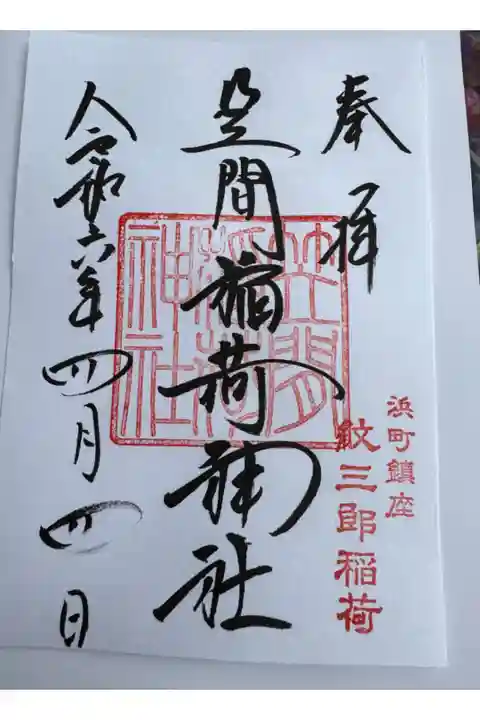 奉拝
浜町鎮座
紋三郎稲荷
笠間稲荷神社
笠間稲荷神社
令和六年四月四日